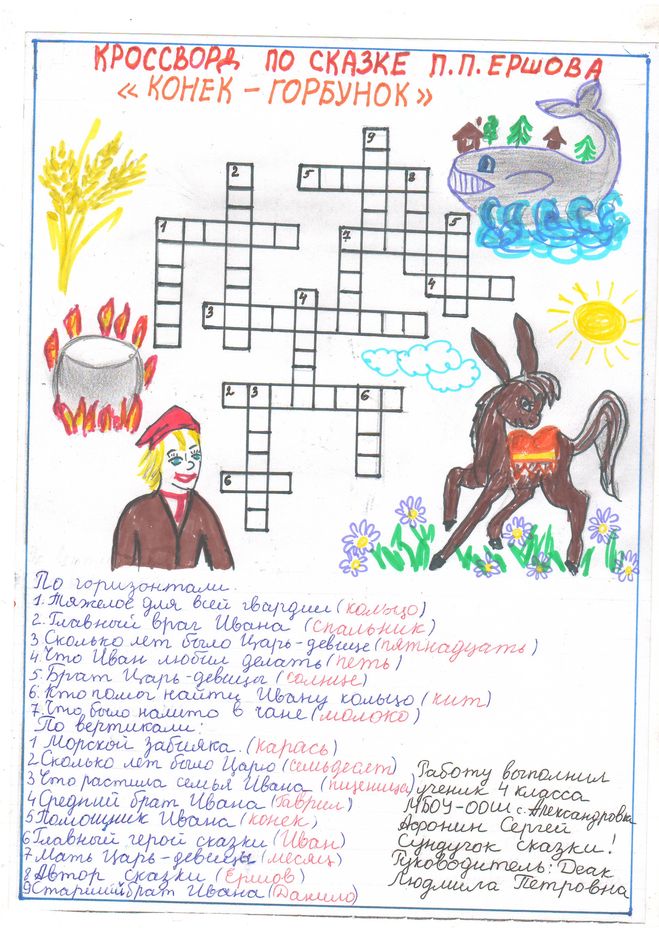 КРОССВОРД ПО СКАЗКЕ П.П.ЕРШОВА
« КОНЕК - ГОРБУНОК »
9
2
5 8
1 7 5
4
4
3
2 3 6
6
По горизонтали.
1. Тяжелое для всей гвардии (кольцо)
2. Главный враг Ивана (спальник)
3 Сколько лет было Царь-девице (пятнадцать)
4. Что Иван любил делать (петь)
5. Брат Царь-девицы (солнце)
6. Кто помог найти Ивану кольцо (кит)
7. Что было налито в чане (молоко)
По вертикали:
1 Морской забияка. (карась)
2 Сколько лет было Царю (семьдесят)
3 Что растила семья Ивана (пшеница)
4 Средний брат Ивана (Гаврил)
5 Помощник Ивана (конек)
6 Главный герой сказки (Иван)
7 Мать Царь-девицы (месяц)
8 Автор сказки (Ершов)
9 Старший брат Ивана (Данило)
Работу выполнил
ученик 4 класса
МБОУ-ООШ с. Александровка
Афонин Сергей
Сундучок сказки!
Руководитель: Деак
Людмила Петровна